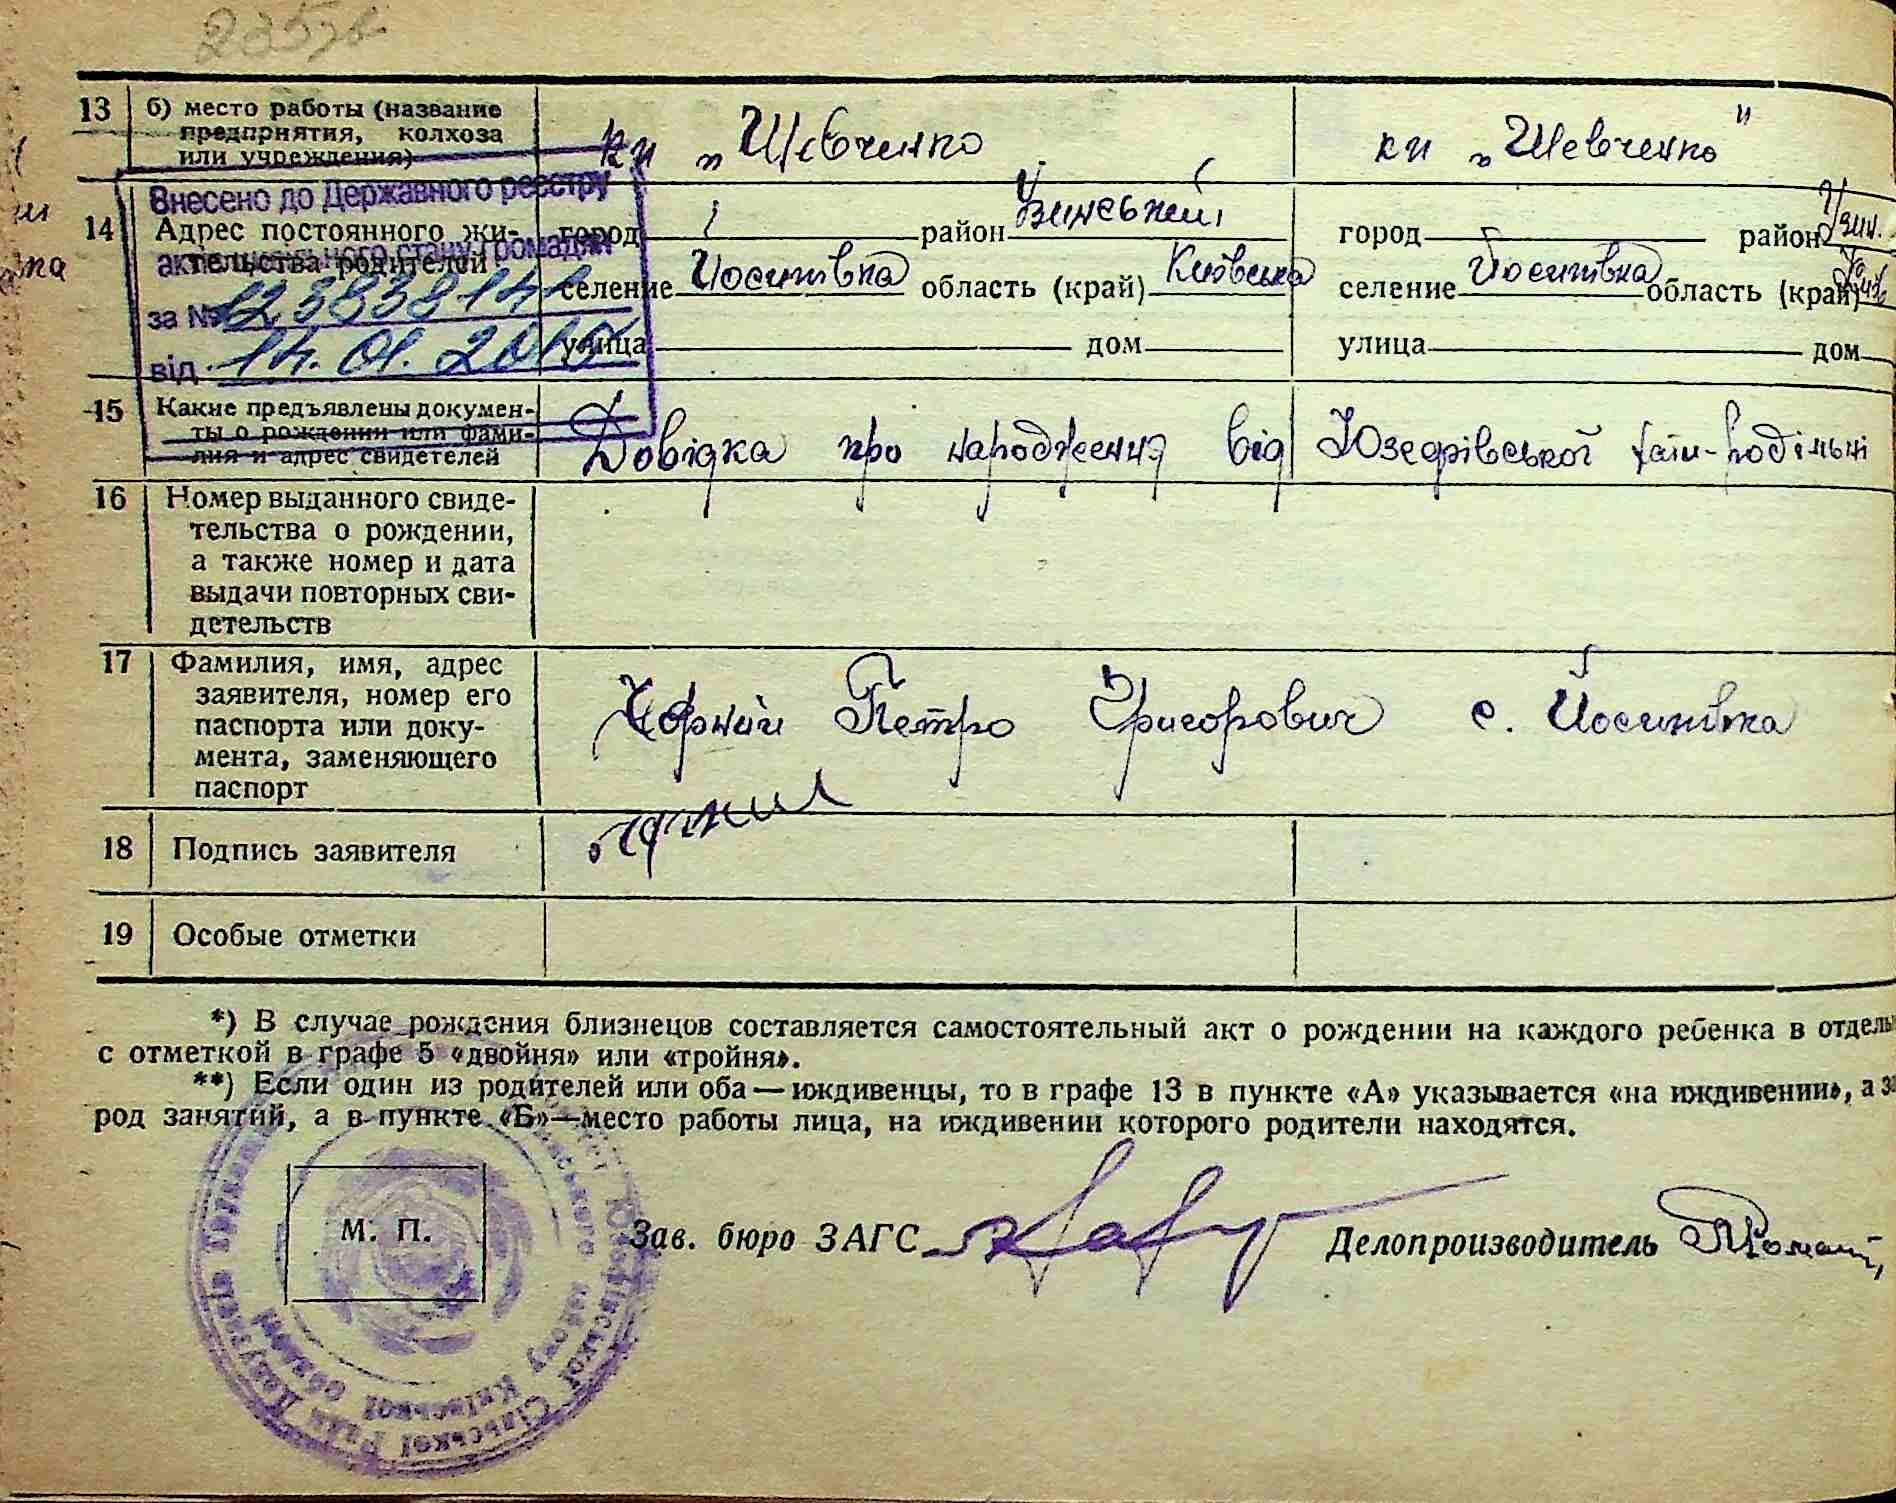 13 б) место работы (название
предприятия, колхоза
или учреждения)
кп „Шевченко
кп „Шевченко"
Внесено до Державного реєстру
актів цивільного стану громадян
за №
від 14. 01. 2015
14 Адрес постоянного жи-
тельства родителей
город район Узинський
селение Йосипівка область (край) Київська
улица дом
город район Узин.
селение Йосипівка область (край) Київ
улица дом
15 Какие предъявлены докумен-
ты о рождении или фами-
лия и адрес свидетелей
Довідка про народження від Юзефівської
16 Номер выданного свиде-
тельства о рождении,
а также номер и дата
выдачи повторных сви-
детельств
17 Фамилия, имя, адрес
заявителя, номер его
паспорта или доку-
мента, заменяющего
паспорт
Чорній Петро Григорович с. Йосипівка
18 Подпись заявителя
19 Особые отметки
*) В случае рождения близнецов составляется самостоятельный акт о рождении на каждого ребенка в отдель
с отметкой в графе 5 «двойня» или «тройня».
**) Если один из родителей или оба — иждивенцы, то в графе 13 в пункте «А» указывается «на иждивении», а
род занятий, а в пункте «Б»—место работы лица, на иждивении которого родители находятся.
М. П.
Зав. бюро ЗАГС
Делопроизводитель
Юзефівської Сільської Ради Депутатів
району Київської області